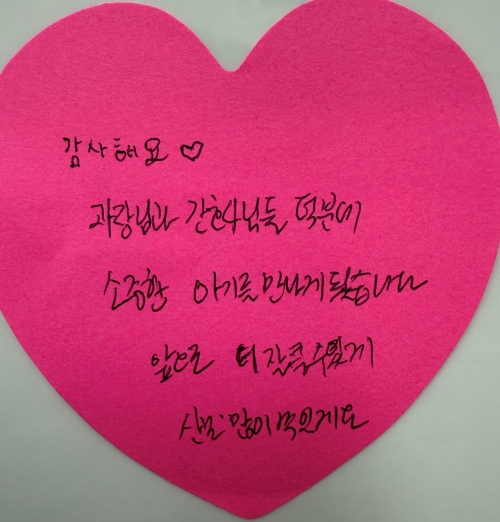 감사해요 ♡
과장님과 간호사님들 덕분에
소중한 아기를 만나게 됐습니다
앞으로 더 잘 클 수 있게
신경 많이 쓰일게요